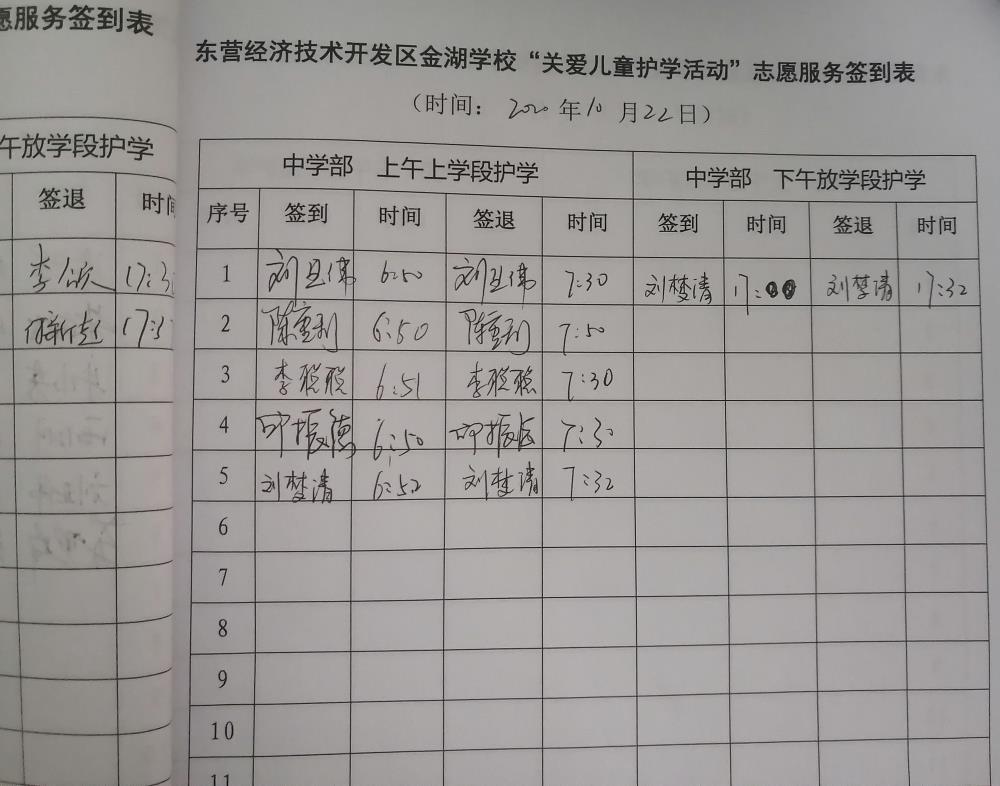 愿服务签到表
午放学段护学
签退 时间
李
17:3
17:3
东营经济技术开发区金湖学校“关爱儿童护学活动”志愿服务签到表
（时间： 2020 年 10 月 22 日）
中学部 上午上学段护学 中学部 下午放学段护学
序号 签到 时间 签退 时间 签到 时间 签退 时间
1 刘 伟 6:50 刘 伟 7:30 刘梦清 17:00 刘梦清 17:32
2 陈重利 6:50 陈重利 7:50
3 李聪聪 6:51 李聪聪 7:30
4 振德 6:50 振德 7:30
5 刘梦清 6:52 刘梦清 7:32
6
7
8
9
10
11